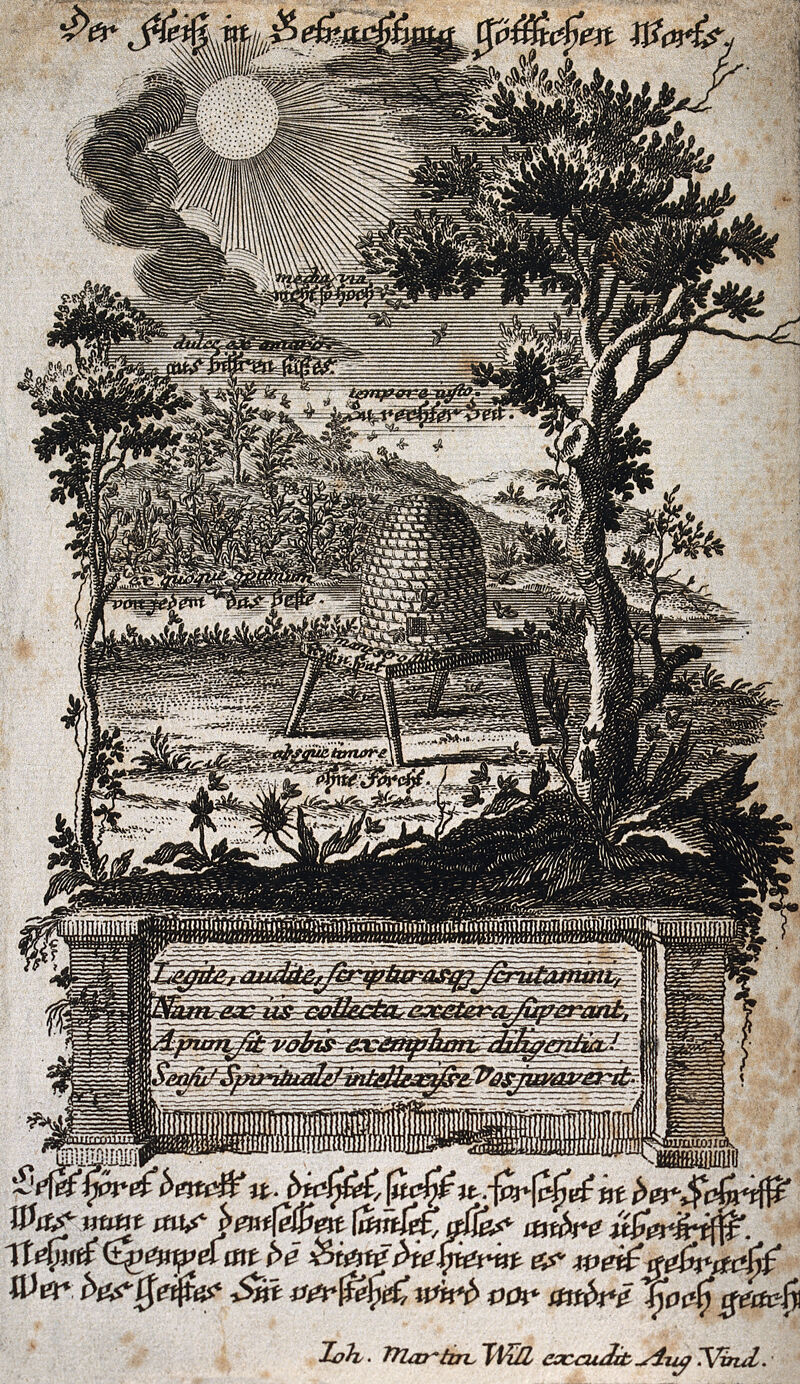 Der Fleiß in Betrachtung Göttlichen Worts.
media via
nicht so hoch
dulce ex amaro.
aus bittren süßes.
tempore iusto.
Zu rechter Zeit.
ex quoque optimum
von jedem das beste.
absque timore
ohne forcht.
Legite, audite, scripturasq; scrutamini,
Nam ex iis collecta exetera superant,
Apum sit vobis exemplum diligentia!
Sensu! Spirituale! intellexisse Vos juvaverit.
Leset höret denckt u. dichtet, sucht u. forschet in der Schrifft
Was man aus demselben sam̄let, alles andre übertrifft.
Nehmt Exempel an dē Bienē die hierin es weit gebracht
Wer des Geistes Sin̄ verstehet, wird vor andrē hoch geacht
Ioh. Martin Will excudit Aug. Vind.